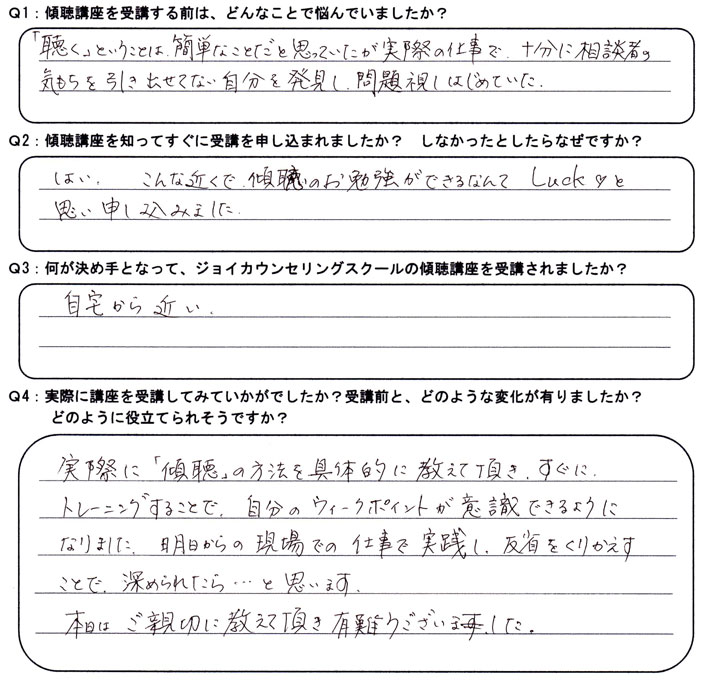 Q1：傾聴講座を受講する前は、どんなことで悩んでいましたか？
「聴く」ということは、簡単なことだと思っていたが実際の仕事で、十分に相談者の
気もちを引き出せてない自分を発見し、問題視しはじめていた。
Q2：傾聴講座を知ってすぐに受講を申し込まれましたか？　しなかったとしたらなぜですか？
はい。　こんな近くで、傾聴のお勉強ができるなんて Lucky と
思い申し込みました。
Q3：何が決め手となって、ジョイカウンセリングスクールの傾聴講座を受講されましたか？
自宅から近い。
Q4：実際に講座を受講してみていかがでしたか？受講前と、どのような変化が有りましたか？
どのように役立てられそうですか？
実際に「傾聴」の方法を具体的に教えて頂き、すぐに、
トレーニングすることで、自分のウィークポイントが意識できるように
なりました。明日からの現場での仕事で実践し、反省をくりかえす
ことで、深められたら…と思います。
本日はご親切に教えて頂き有難うございました。